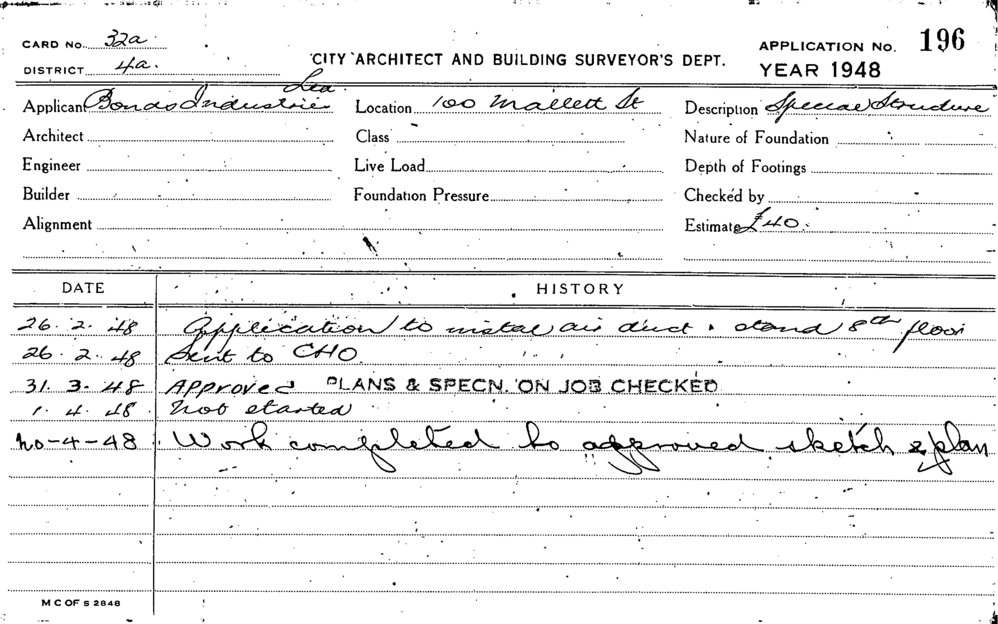 CARD No. 32a.
DISTRICT 4a.
CITY ARCHITECT AND BUILDING SURVEYOR'S DEPT.
APPLICATION No. 196
YEAR 1948
Applicant Bonds Industries Location 100 Mallett St Description Special Structure
Architect Class Nature of Foundation
Engineer Live Load Depth of Footings
Builder Foundation Pressure Checked by
Alignment Estimate £40.
DATE HISTORY
26. 2. 48 Application to instal air duct & stand 8th floor
26. 2. 48 Sent to CHO.
31. 3. 48 Approved PLANS & SPECN. ON JOB CHECKED
1. 4. 48 Not started
-4-48 Work completed to approved sketch & plan
M C OF S 2848